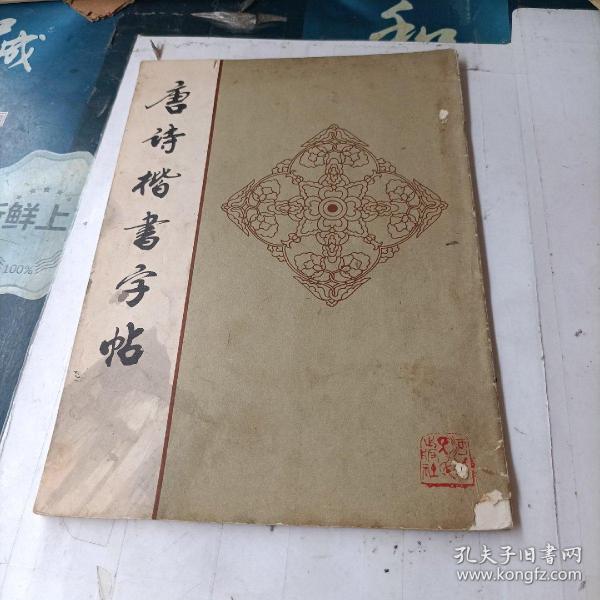 唐诗楷书字帖
出版社
和
鲜上
100%
孔夫子旧书网
www.kongfz.com